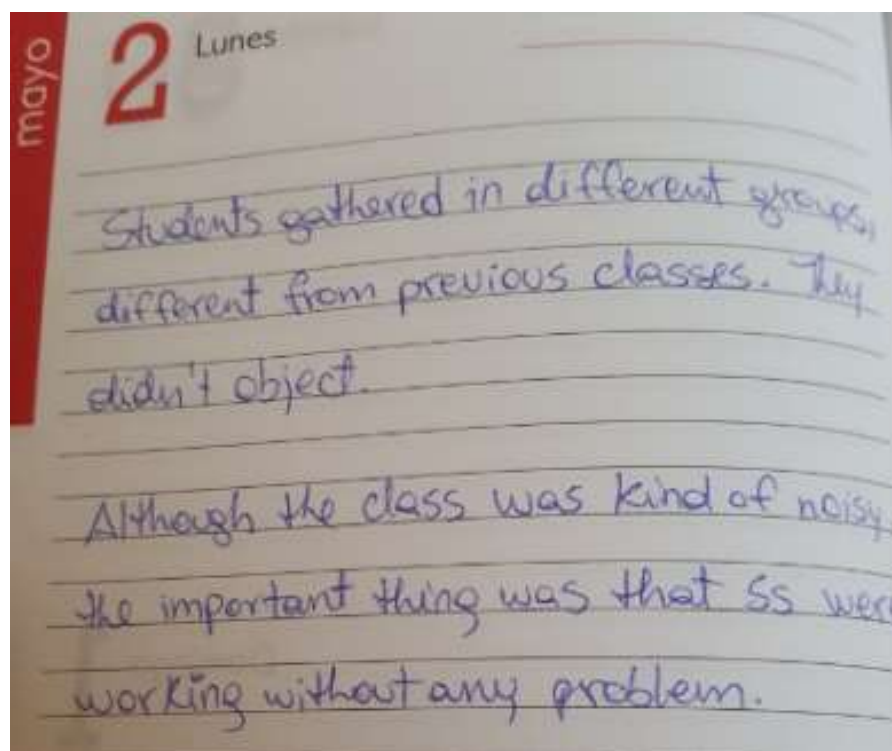 mayo
2 Lunes
Students gathered in different groups,
different from previous classes. They
didn't object.
Although the class was kind of noisy
the important thing was that Ss wer
working without any problem.